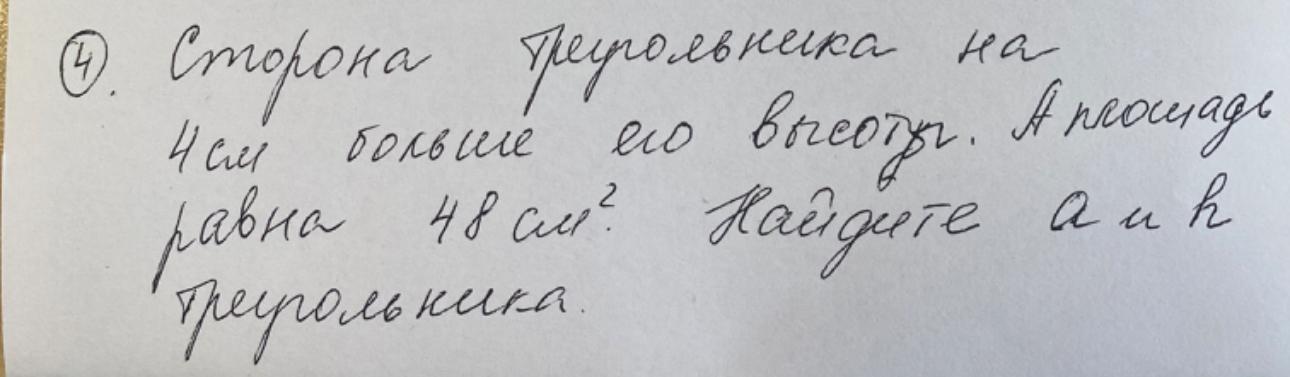 4. Сторона треугольника на
4 см больше его высоты. А площадь
равна 48 см². Найдите a и h
треугольника.